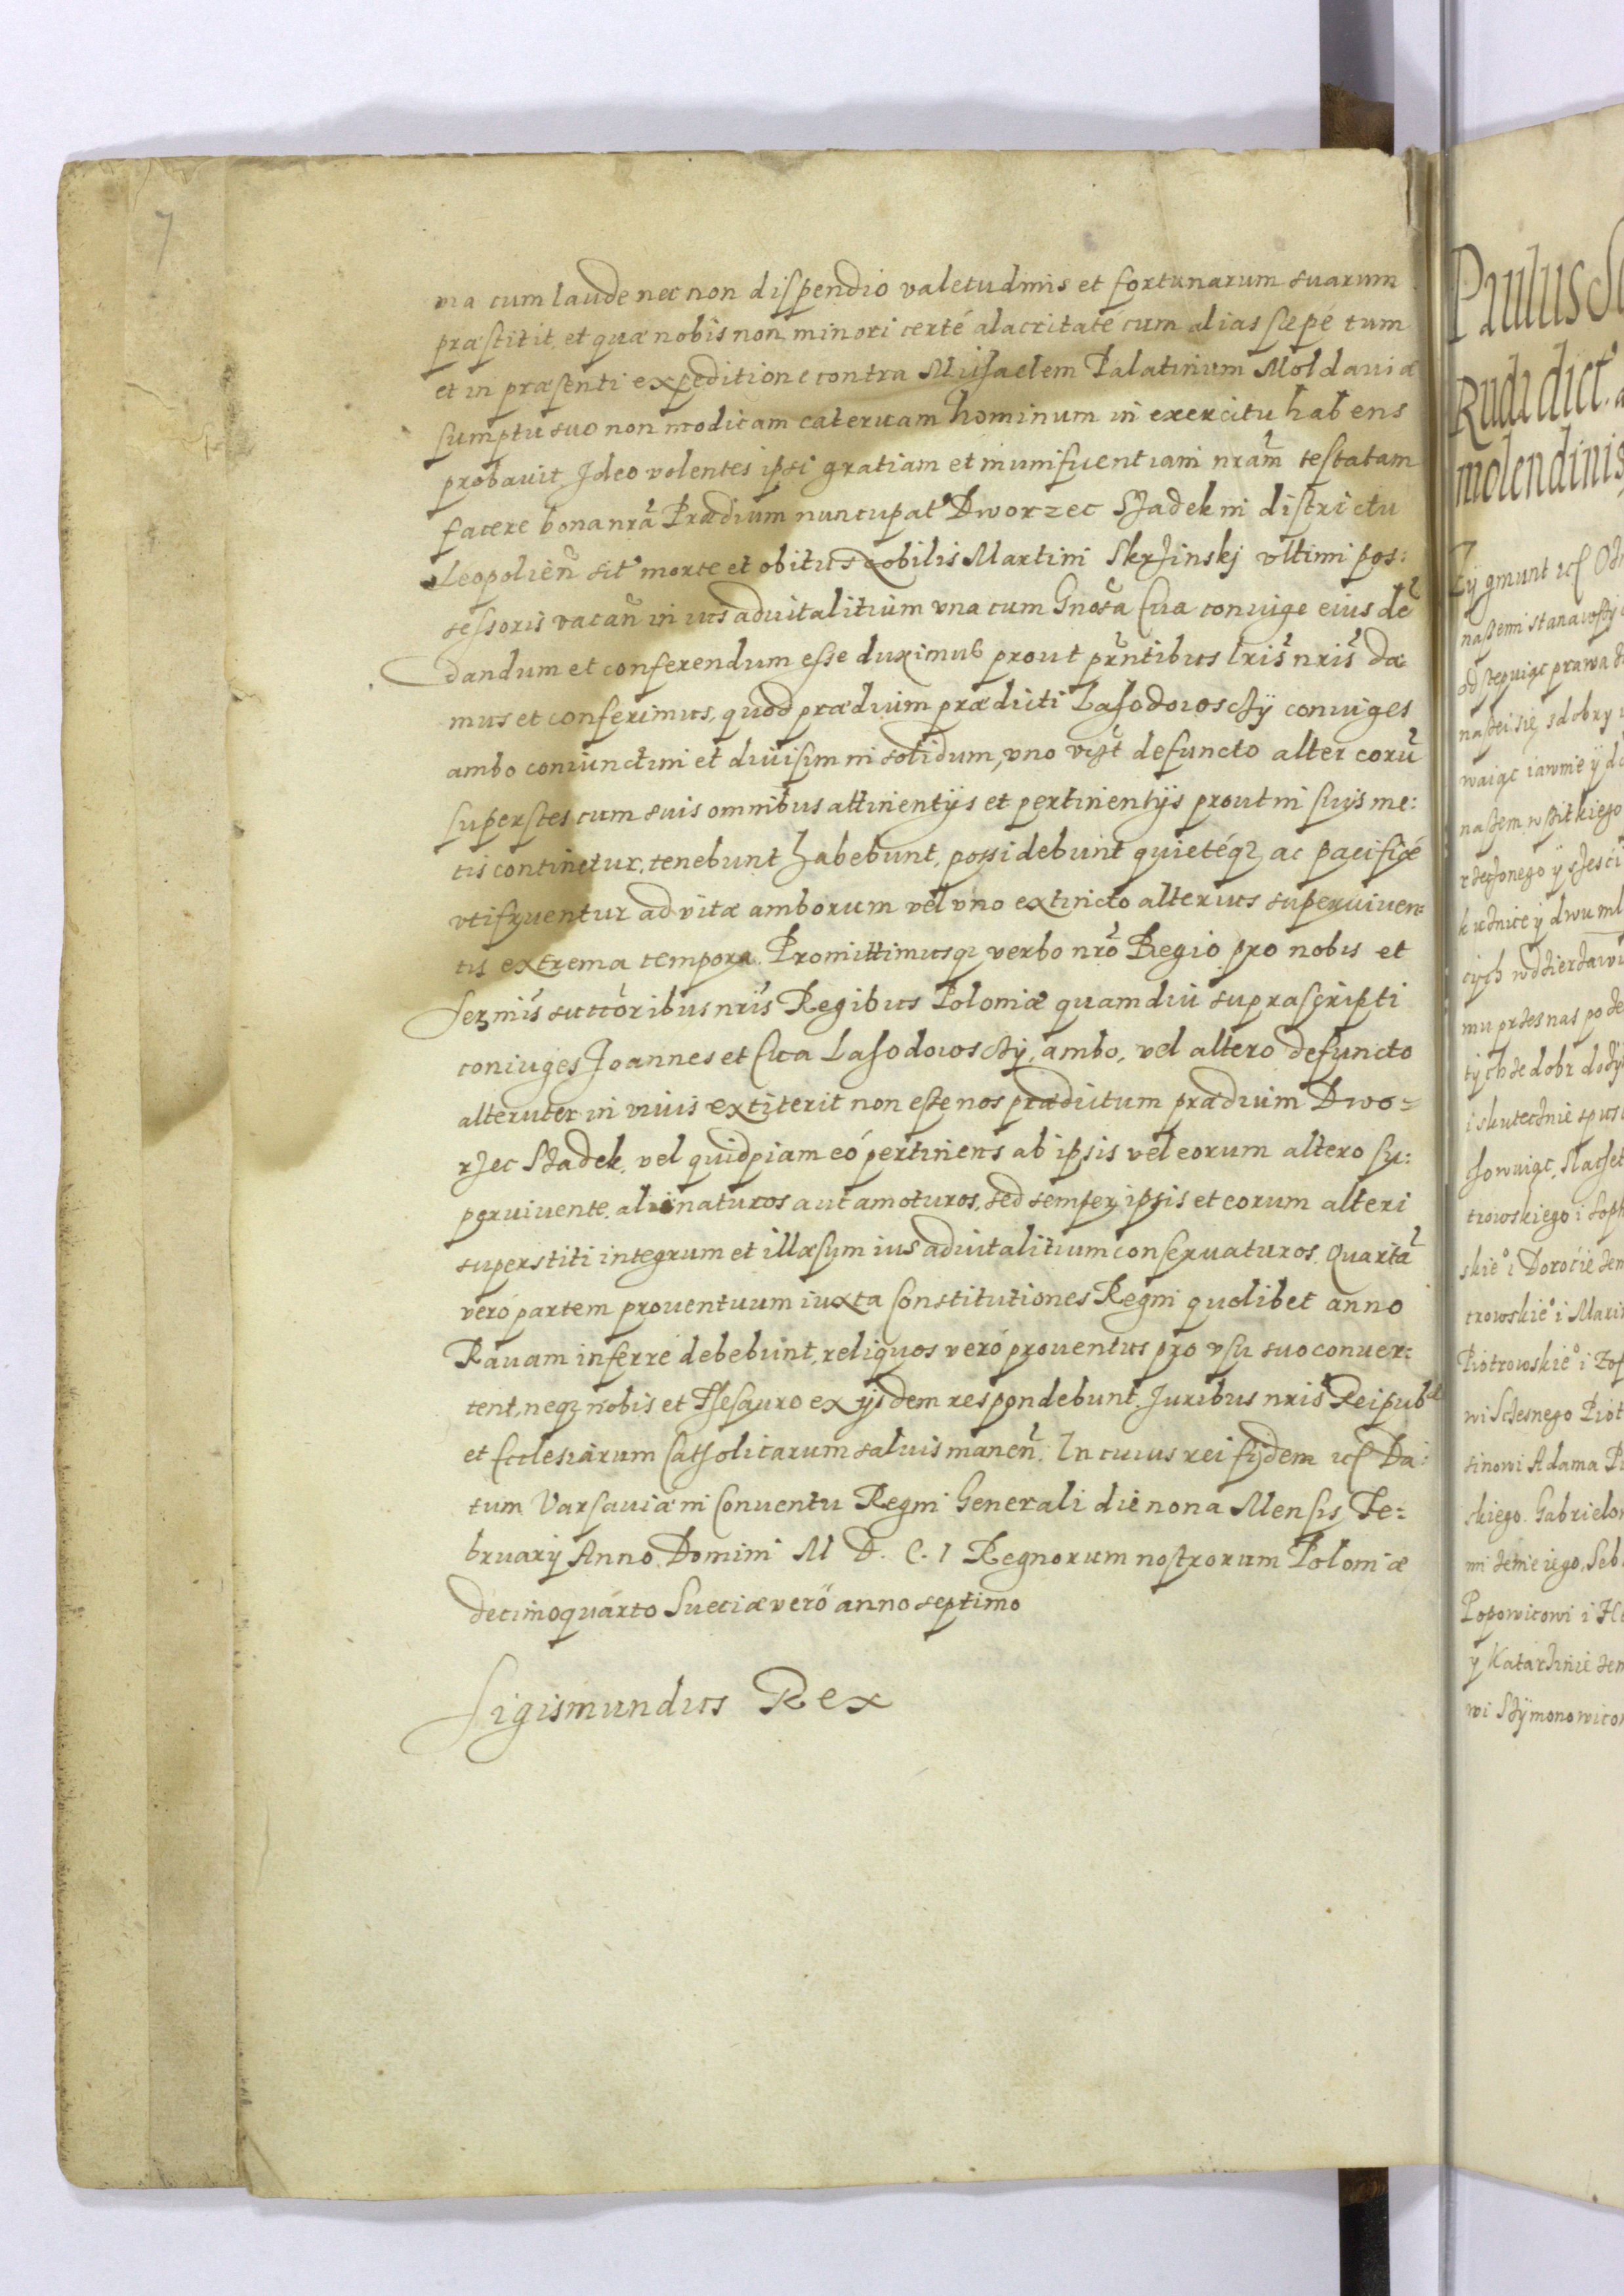 7
ma cum laude nec non dispendio valetudinis et fortunarum suarum
præstitit, et quæ nobis non minori certé alacritate cum alias sæpé tum
et in præsenti expeditione contra Michaelem Palatinum Moldaviæ
sumptu suo non modicam cateruam hominum in exercitu habens
probauit, Ideo volentes ipsi gratiam et munificentiam nrãm testatam
facere bona nrã Prædium nuncupat Dworzec Szadek in districtu
Leopolieñ sit morte et obitu Nobilis Martini Skrzinskj vltimi pos:
sessoris vacañ in ius aduitalitium vna cum Gnosã Eua coniuge eius de
dandum et conferendum esse duximus prout prñtibus lris nris da
mus et conferimus, quod prædium prædicti Lasodowsczÿ coniuges
ambo coniunctim et diuisim in solidum, vno vizt defuncto alter eorũ
superstes cum suis omnibus attinentijs et pertinentijs prout in suis me:
tis continetur, tenebunt habebunt, possidebunt quietéqz ac pacificé
vtifruentur ad vitæ amborum vel vno extincto alterius superuiuen=
tis extrema tempora. Promittimusqz verbo nrõ Regio pro nobis et
Sermis succoribus nris Regibus Poloniæ quamdiu suprascripti
coniuges Joannes et Eua Lasodowsczÿ, ambo, vel altero defuncto
alteruter in viuis extiterit non esse nos prædictum prædium Dwo=
rzec Szadek, vel quidpiam eó pertinens ab ipsis vel eorum altero su:
peruiuente, alienaturos aut amoturos, sed semper ipsis et eorum alteri
superstiti integrum et illæsum ius aduitalitium conseruaturos. Quartã
veró partem prouentuum iuxta Constitutiones Regni quolibet anno
Rauam inferre debebunt, reliquos veró prouentus pro vsu suo conuer:
tent, neqz nobis et Thesauro ex ijsdem respondebunt. Juribus nris Reipubl
et Ecclesiarum Catholicarum saluis maneñ. In cuius rei fidem etc Da:
tum Varsauiæ in Conuentu Regni Generali die nona Mensis Fe=
bruarij Anno Domini M D. C. I Regnorum nostrorum Poloniæ
decimoquarto Sueciæ veró anno septimo
Sigismundus Rex
Paulus
Rudi dict.
molendinis
Zÿgmunt etc
od stepuiąc prawa
naszei się, s dobry
waiąc iawnie ÿ
naszem, wszitkiego
kucznice ÿ dwu
mu przes nas
tÿchze dobr
i skutecznie
trowskiego i
skieº i Dorocie
trowskieº i
Piotrowskieº i
wi Sczesnego
sinowi Adama
skiego. Gabrielo
mi zenie iego,
Popowicowi i
y Katarzinie
wi Szÿmonowico